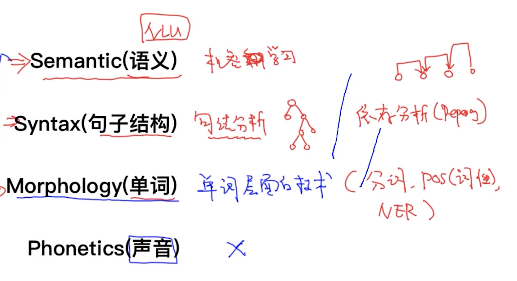 NLU
Semantic(语义) 机器学习
Syntax(句子结构) 句法分析 依存分析(
Morphology(单词) 单词层面的技术 (分词、POS(词性),
NER)
Phonetics(声音) ×